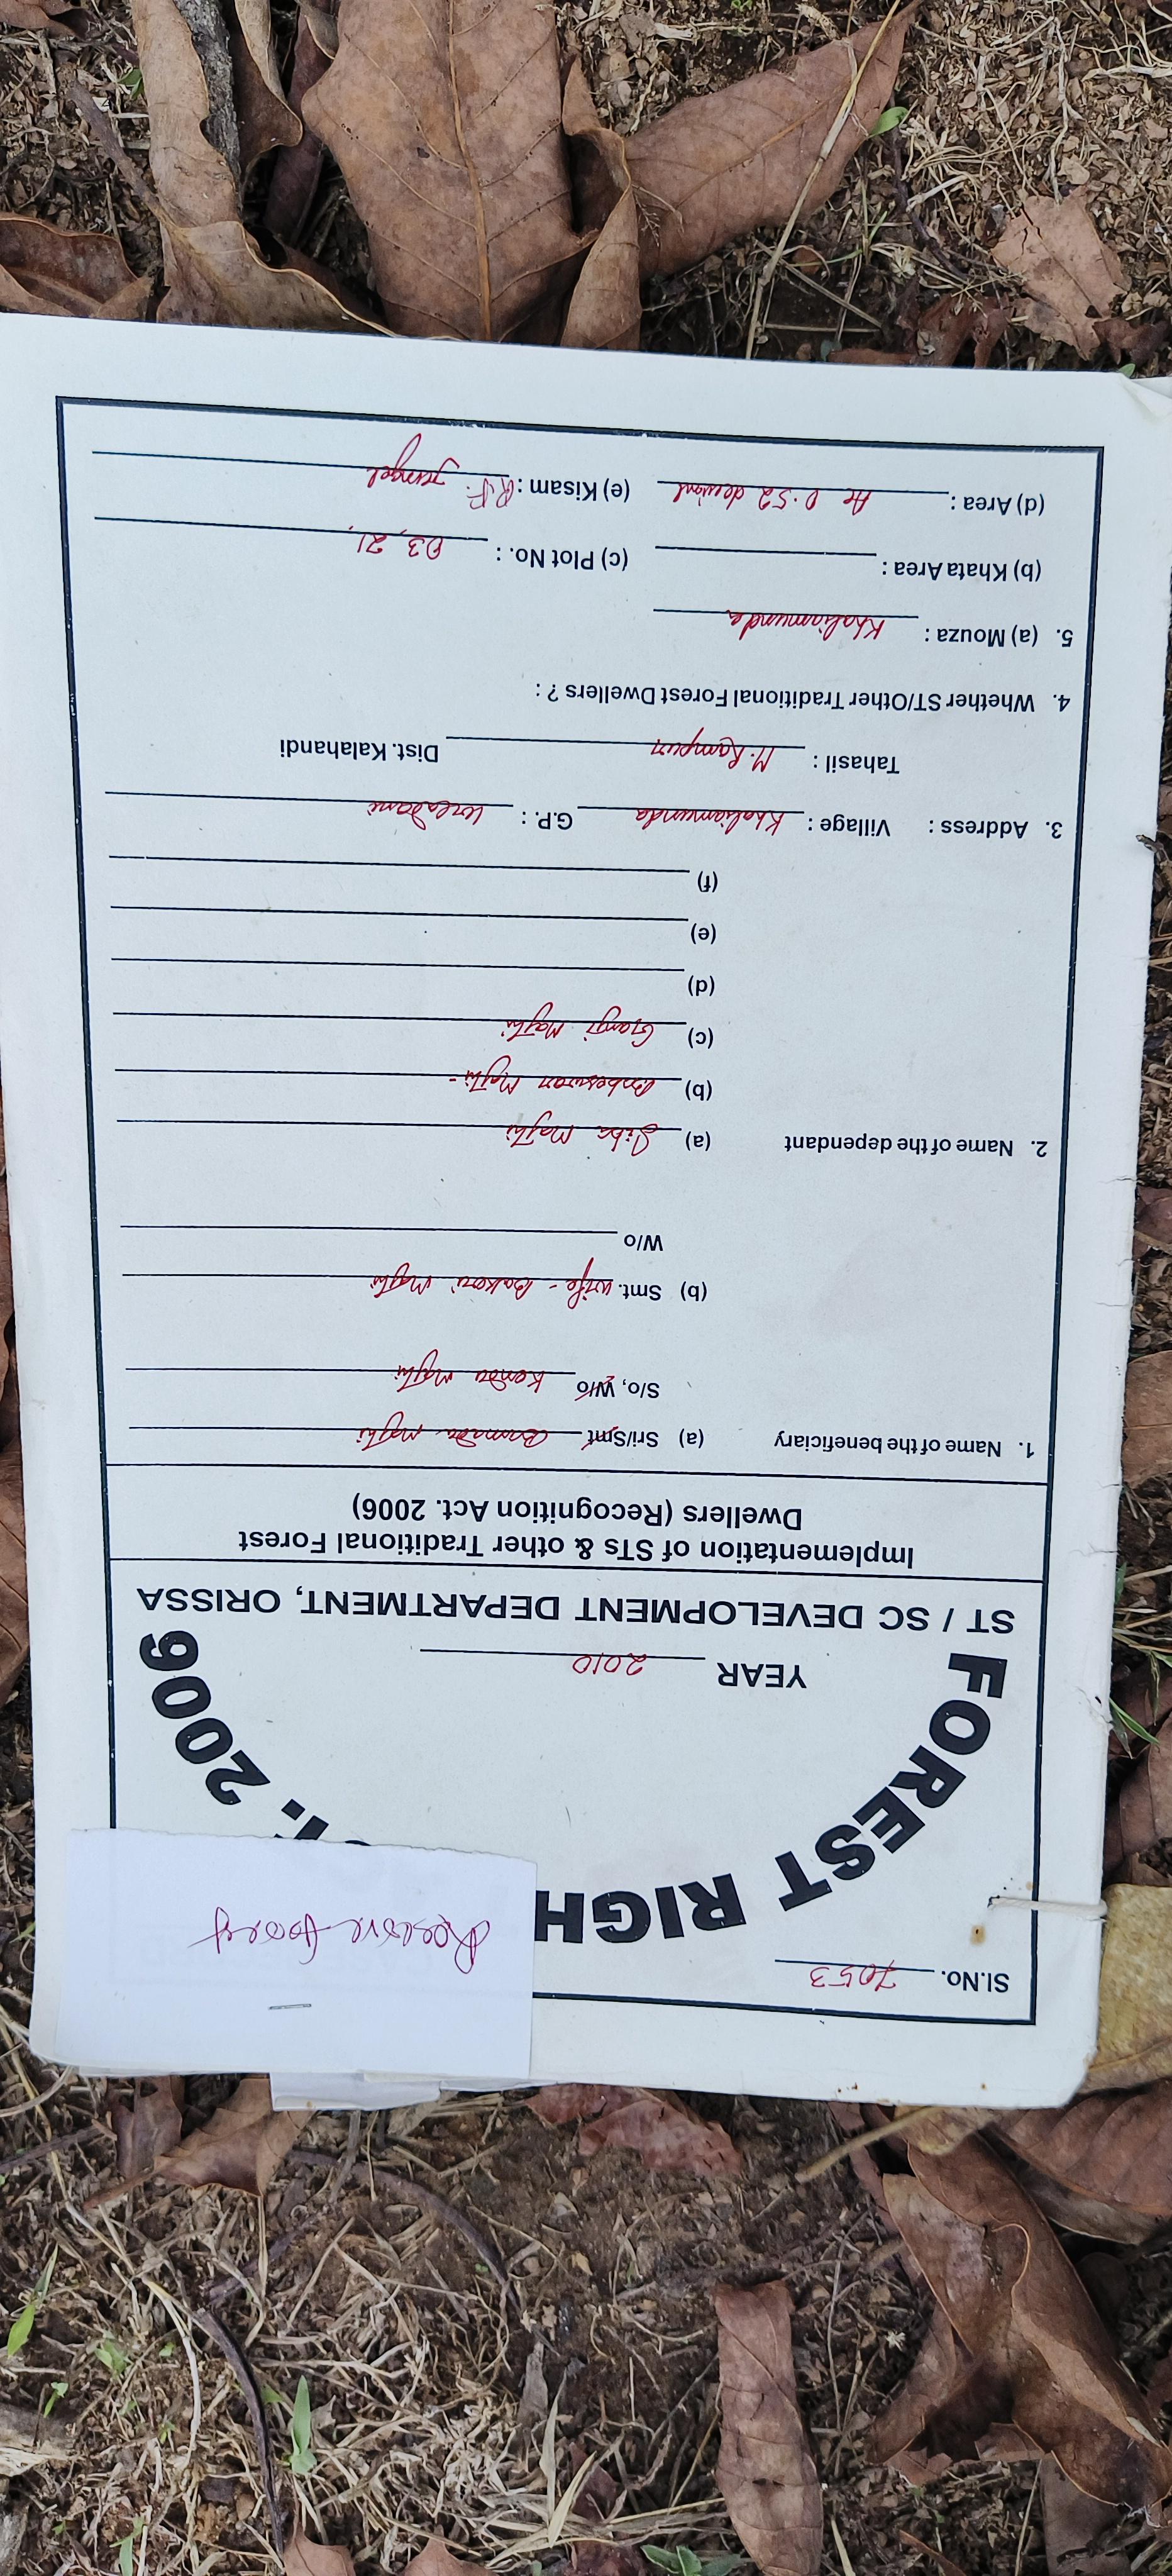 Reserve forest
Sl.No. 7053
FOREST RIGH ct. 2006
YEAR 2010
ST / SC DEVELOPMENT DEPARTMENT, ORISSA
Implementation of STs & other Traditional Forest
Dwellers (Recognition Act. 2006)
1. Name of the beneficiary (a) Sri/Smt Majhi
S/o, W/o Majhi
(b) Smt. wife - Majhi
W/o
2. Name of the dependant (a) Majhi
(b) Majhi
(c) Majhi
(d)
(e)
(f)
3. Address : Village : Khaliamunda G.P. :
Tahasil : M. Rampur Dist. Kalahandi
4. Whether ST/Other Traditional Forest Dwellers ? :
5. (a) Mouza : Khaliamunda
(b) Khata Area : (c) Plot No. : 03, 21,
(d) Area : Ac 0.52 (e) Kisam : R.F. Jungel